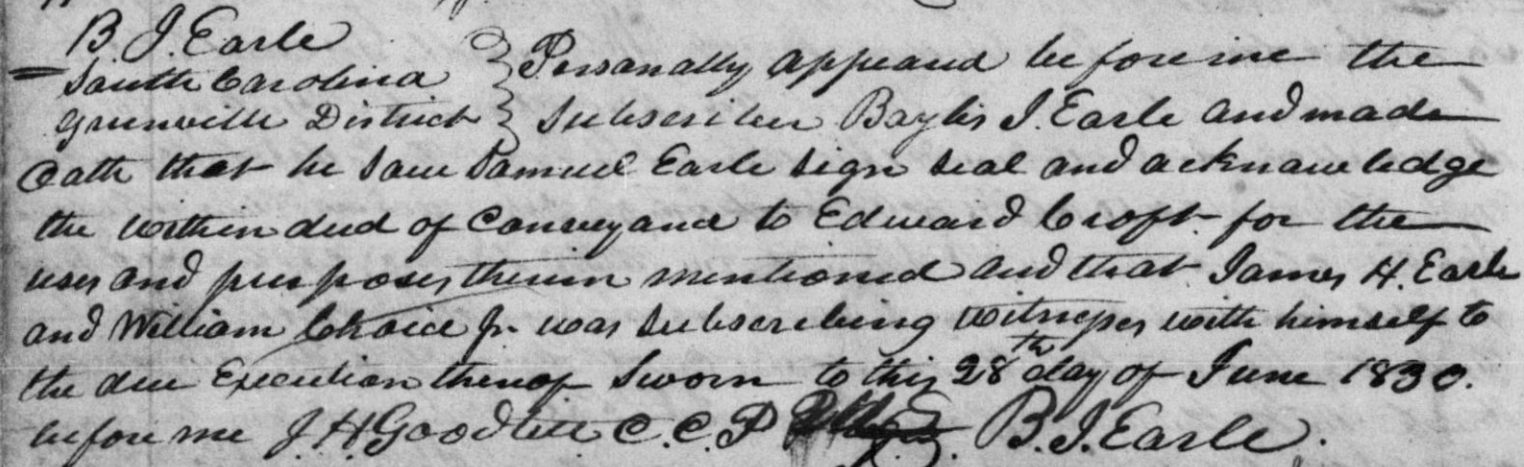 B. J. Earle
South Carolina } Personally appeard before me the
Greenville District } Subscriber Baylis J. Earle and made
Oath that he saw Samuel Earle sign seal and acknowledge
the within deed of Conveyance to Edward Croft for the
uses and purposes therein mentioned and that James H. Earle
and William Choice Jr. was Subscribing witnesses with himself to
the due Execution thereof Sworn to this 28th day of June 1830.
before me J. H. Goodlett C. C. P B. J. Earle.